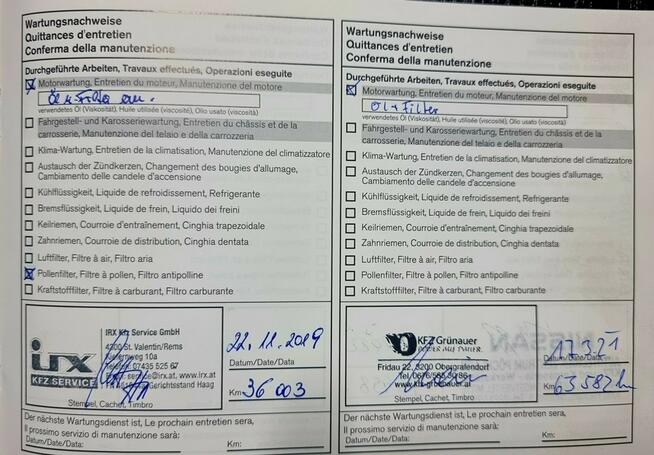 Wartungsnachweise
Quittances d'entretien
Conferma della manutenzione
Durchgeführte Arbeiten, Travaux effectués, Operazioni eseguite
Motorwartung, Entretien du moteur, Manutenzione del motore
Öl u Filter
verwendetes Öl (Viskosität), Huile utilisée (viscosité), Olio usato (viscosità)
Fahrgestell- und Karosseriewartung, Entretien du châssis et de la
carrosserie, Manutenzione del telaio e della carrozzeria
Klima-Wartung, Entretien de la climatisation, Manutenzione del climatizzatore
Austausch der Zündkerzen, Changement des bougies d'allumage,
Cambiamento delle candele d'accensione
Kühlflüssigkeit, Liquide de refroidissement, Refrigerante
Bremsflüssigkeit, Liquide de frein, Liquido dei freini
Keilriemen, Courroie d'entraînement, Cinghia trapezoidale
Zahnriemen, Courroie de distribution, Cinghia dentata
Luftfilter, Filtre à air, Filtro aria
Pollenfilter, Filtre à pollen, Filtro antipolline
Kraftstofffilter, Filtre à carburant, Filtro carburante
irx
KFZ SERVICE
IRX Kfz Service GmbH
4300 St. Valentin/Rems
10a
07435 525 67
service@irx.at, www.irx.at
Gerichtsstand Haag
Stempel, Cachet, Timbro
22.11.2019
Datum/Date/Data:
Km: 36 003
Der nächste Wartungsdienst ist, Le prochain entretien sera,
Il prossimo servizio di manutenzione sarà:
Datum/Date/Data:
Km:
Wartungsnachweise
Quittances d'entretien
Conferma della manutenzione
Durchgeführte Arbeiten, Travaux effectués, Operazioni eseguite
Motorwartung, Entretien du moteur, Manutenzione del motore
Öl + Filter
verwendetes Öl (Viskosität), Huile utilisée (viscosité), Olio usato (viscosità)
Fahrgestell- und Karosseriewartung, Entretien du châssis et de la
carrosserie, Manutenzione del telaio e della carrozzeria
Klima-Wartung, Entretien de la climatisation, Manutenzione del climatizzatore
Austausch der Zündkerzen, Changement des bougies d'allumage,
Cambiamento delle candele d'accensione
Kühlflüssigkeit, Liquide de refroidissement, Refrigerante
Bremsflüssigkeit, Liquide de frein, Liquido dei freini
Keilriemen, Courroie d'entraînement, Cinghia trapezoidale
Zahnriemen, Courroie de distribution, Cinghia dentata
Luftfilter, Filtre à air, Filtro aria
Pollenfilter, Filtre à pollen, Filtro antipolline
Kraftstofffilter, Filtre à carburant, Filtro carburante
KFZ Grünauer
POWER AUF DAUER.
Fridau 22, 3200 Obergrafendorf
www.kfz-gruenauer.at
Stempel, Cachet, Timbro
Datum/Date/Data:
Km: 63582 km
Der nächste Wartungsdienst ist, Le prochain entretien sera,
Il prossimo servizio di manutenzione sarà:
Datum/Date/Data:
Km: